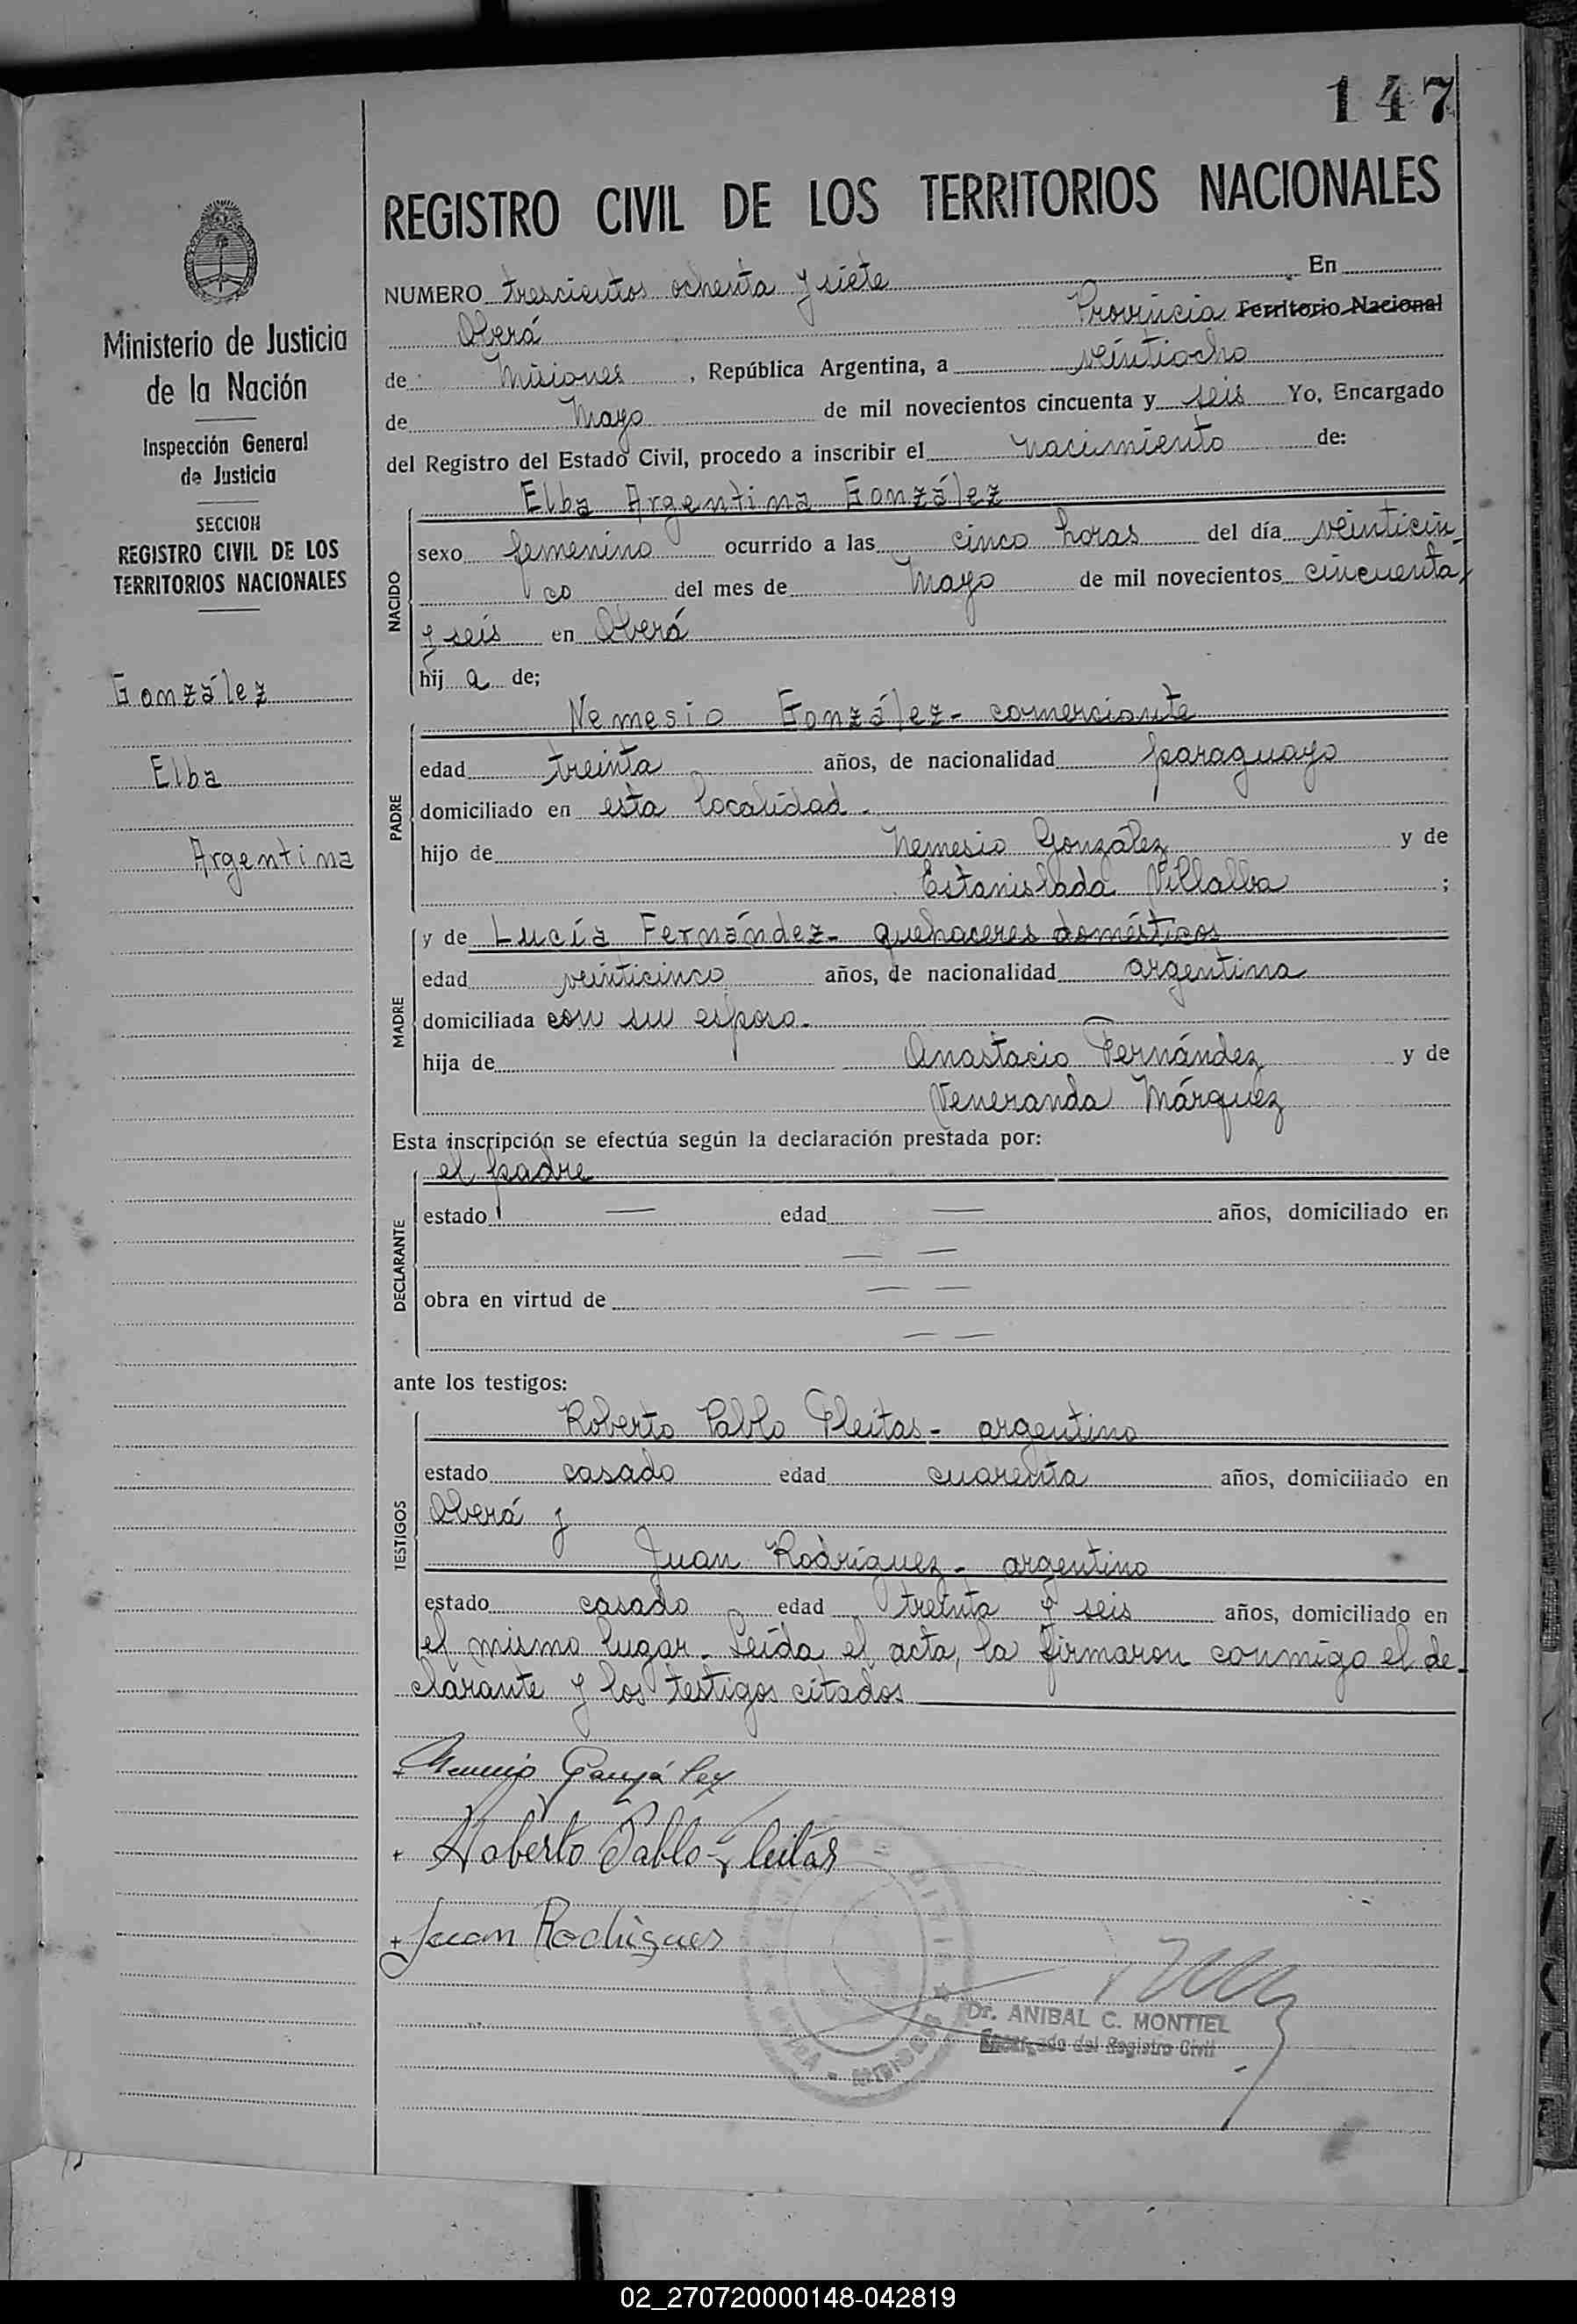 147
REGISTRO CIVIL DE LOS TERRITORIOS NACIONALES
Ministerio de Justicia
de la Nación
Inspección General
de Justicia
SECCION
REGISTRO CIVIL DE LOS
TERRITORIOS NACIONALES
González
Elba
Argentina
NUMERO trescientos ochenta y siete En
Oberá Provincia Territorio Nacional
de Misiones, República Argentina, a veintiocho
de Mayo de mil novecientos cincuenta y seis Yo, Encargado
del Registro del Estado Civil, procedo a inscribir el nacimiento de:
NACIDO
Elba Argentina González
sexo femenino ocurrido a las cinco horas del día veinticin-
co del mes de Mayo de mil novecientos cincuenta
y seis en Oberá
hij a de;
PADRE
Nemesio González - comerciante
edad treinta años, de nacionalidad paraguayo
domiciliado en esta localidad.
hijo de Nemesio González y de
Estanislada Villalba ;
MADRE
y de Lucía Fernández - quehaceres domésticos
edad veinticinco años, de nacionalidad argentina
domiciliada con su esposo.
hija de Anastacio Fernández y de
Veneranda Márquez
Esta inscripción se efectúa según la declaración prestada por:
DECLARANTE
el padre
estado — edad — años, domiciliado en
— —
obra en virtud de — —
— —
ante los testigos:
TESTIGOS
Roberto Pablo Fleitas - argentino
estado casado edad cuarenta años, domiciliado en
Oberá y
Juan Rodríguez - argentino
estado casado edad treinta y seis años, domiciliado en
el mismo lugar. Leída el acta, la firmaron conmigo el de-
clarante y los testigos citados
Nemesio González
+ Roberto Pablo Fleitas
+ Juan Rodriguez
Dr. ANIBAL C. MONTIEL
Encargado del Registro Civil
02_270720000148-042819